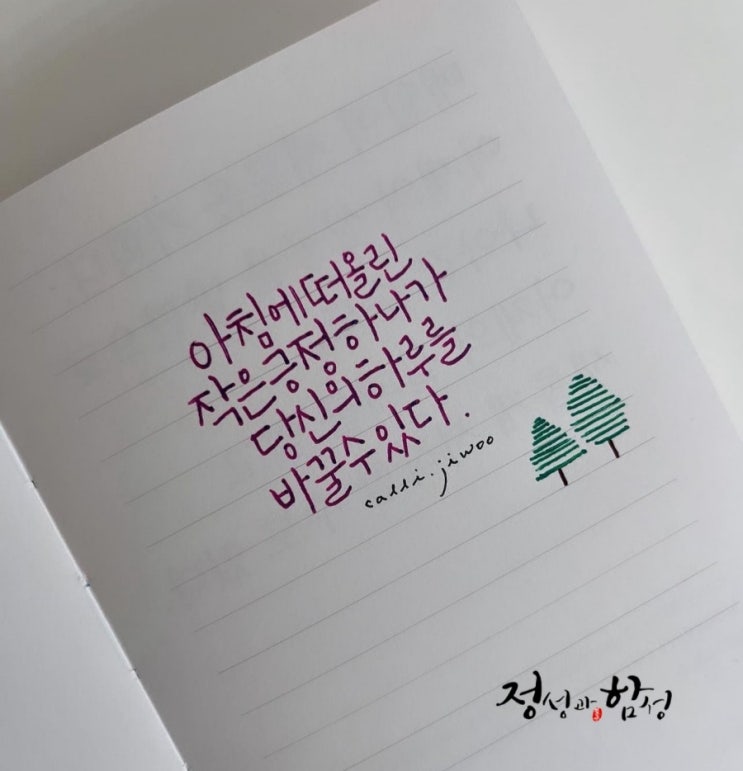 아침에 떠올린
작은 긍정 하나가
당신의 하루를
바꿀 수 있다.
calli.jiwoo
정성과 함성